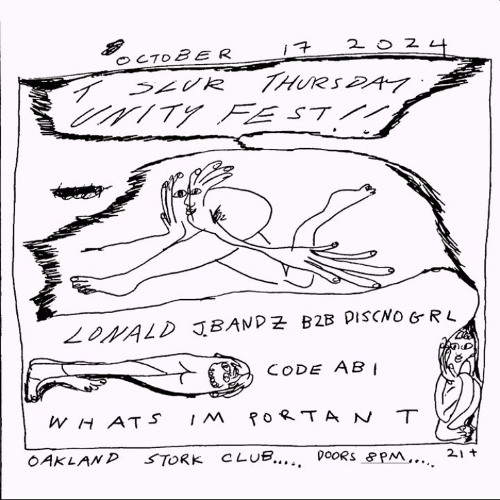 OCTOBER 17 2024
T SLUR THURSDAY
UNITY FEST!!
LONALD J.BANDZ B2B DISCNOGRL
CODE ABI
WHATS IMPORTANT
OAKLAND STORK CLUB..... DOORS 8PM..... 21+